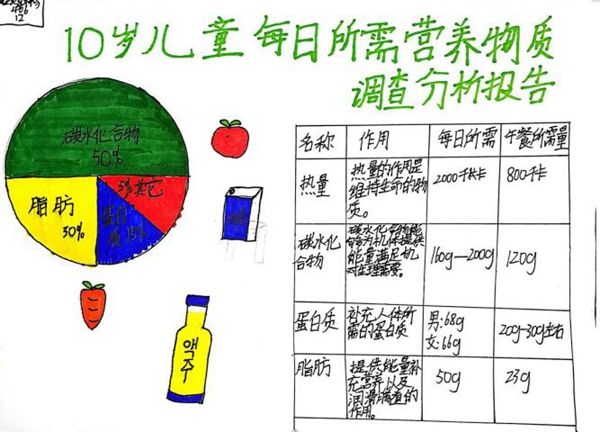 10岁儿童每日所需营养物质
调查分析报告
碳水化合物
50%
脂肪
30%
5%其它
蛋白
质15%
액
주
名称
作用
每日所需
午餐所需量
热量
热量的作用是
维持生命的物
质。
2000千卡
800千卡
碳水化
合物
碳水化合物能
够为机体提供
能量满足机
对生理需要。
160g—200g
120g
蛋白质
补充人体所
需的蛋白质
男:68g
女:66g
20g-30g左右
脂肪
提供能量补
充营养以及
润滑肠道的
作用。
50g
23g